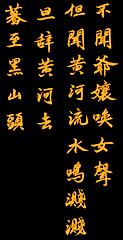 不聞爺孃唤女聲
但聞黃河流水鳴濺濺
旦辞黄河去
暮至黑山頭